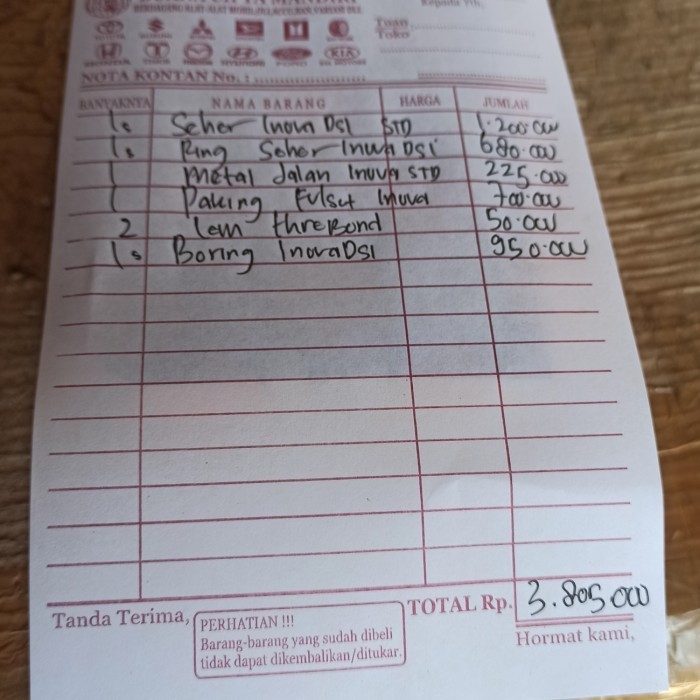 Kepada Yth.
Tuan
Toko
HONDA
MAZDA
HYUNDAI
FORD
KIA
NOTA KONTAN No. :
BANYAKNYA NAMA BARANG HARGA JUMLAH
1s Seher Inova DSI STD 1.200.000
1s Ring Seher Inova DSI 680.000
1 Metal Jalan Inova STD 225.000
1 Paking Fulset Inova 700.000
2 lem threBond 50.000
1s Boring Inova DSI 950.000
TOTAL Rp. 3.805.000
Tanda Terima,
PERHATIAN !!!
Barang-barang yang sudah dibeli
tidak dapat dikembalikan/ditukar.
Hormat kami,